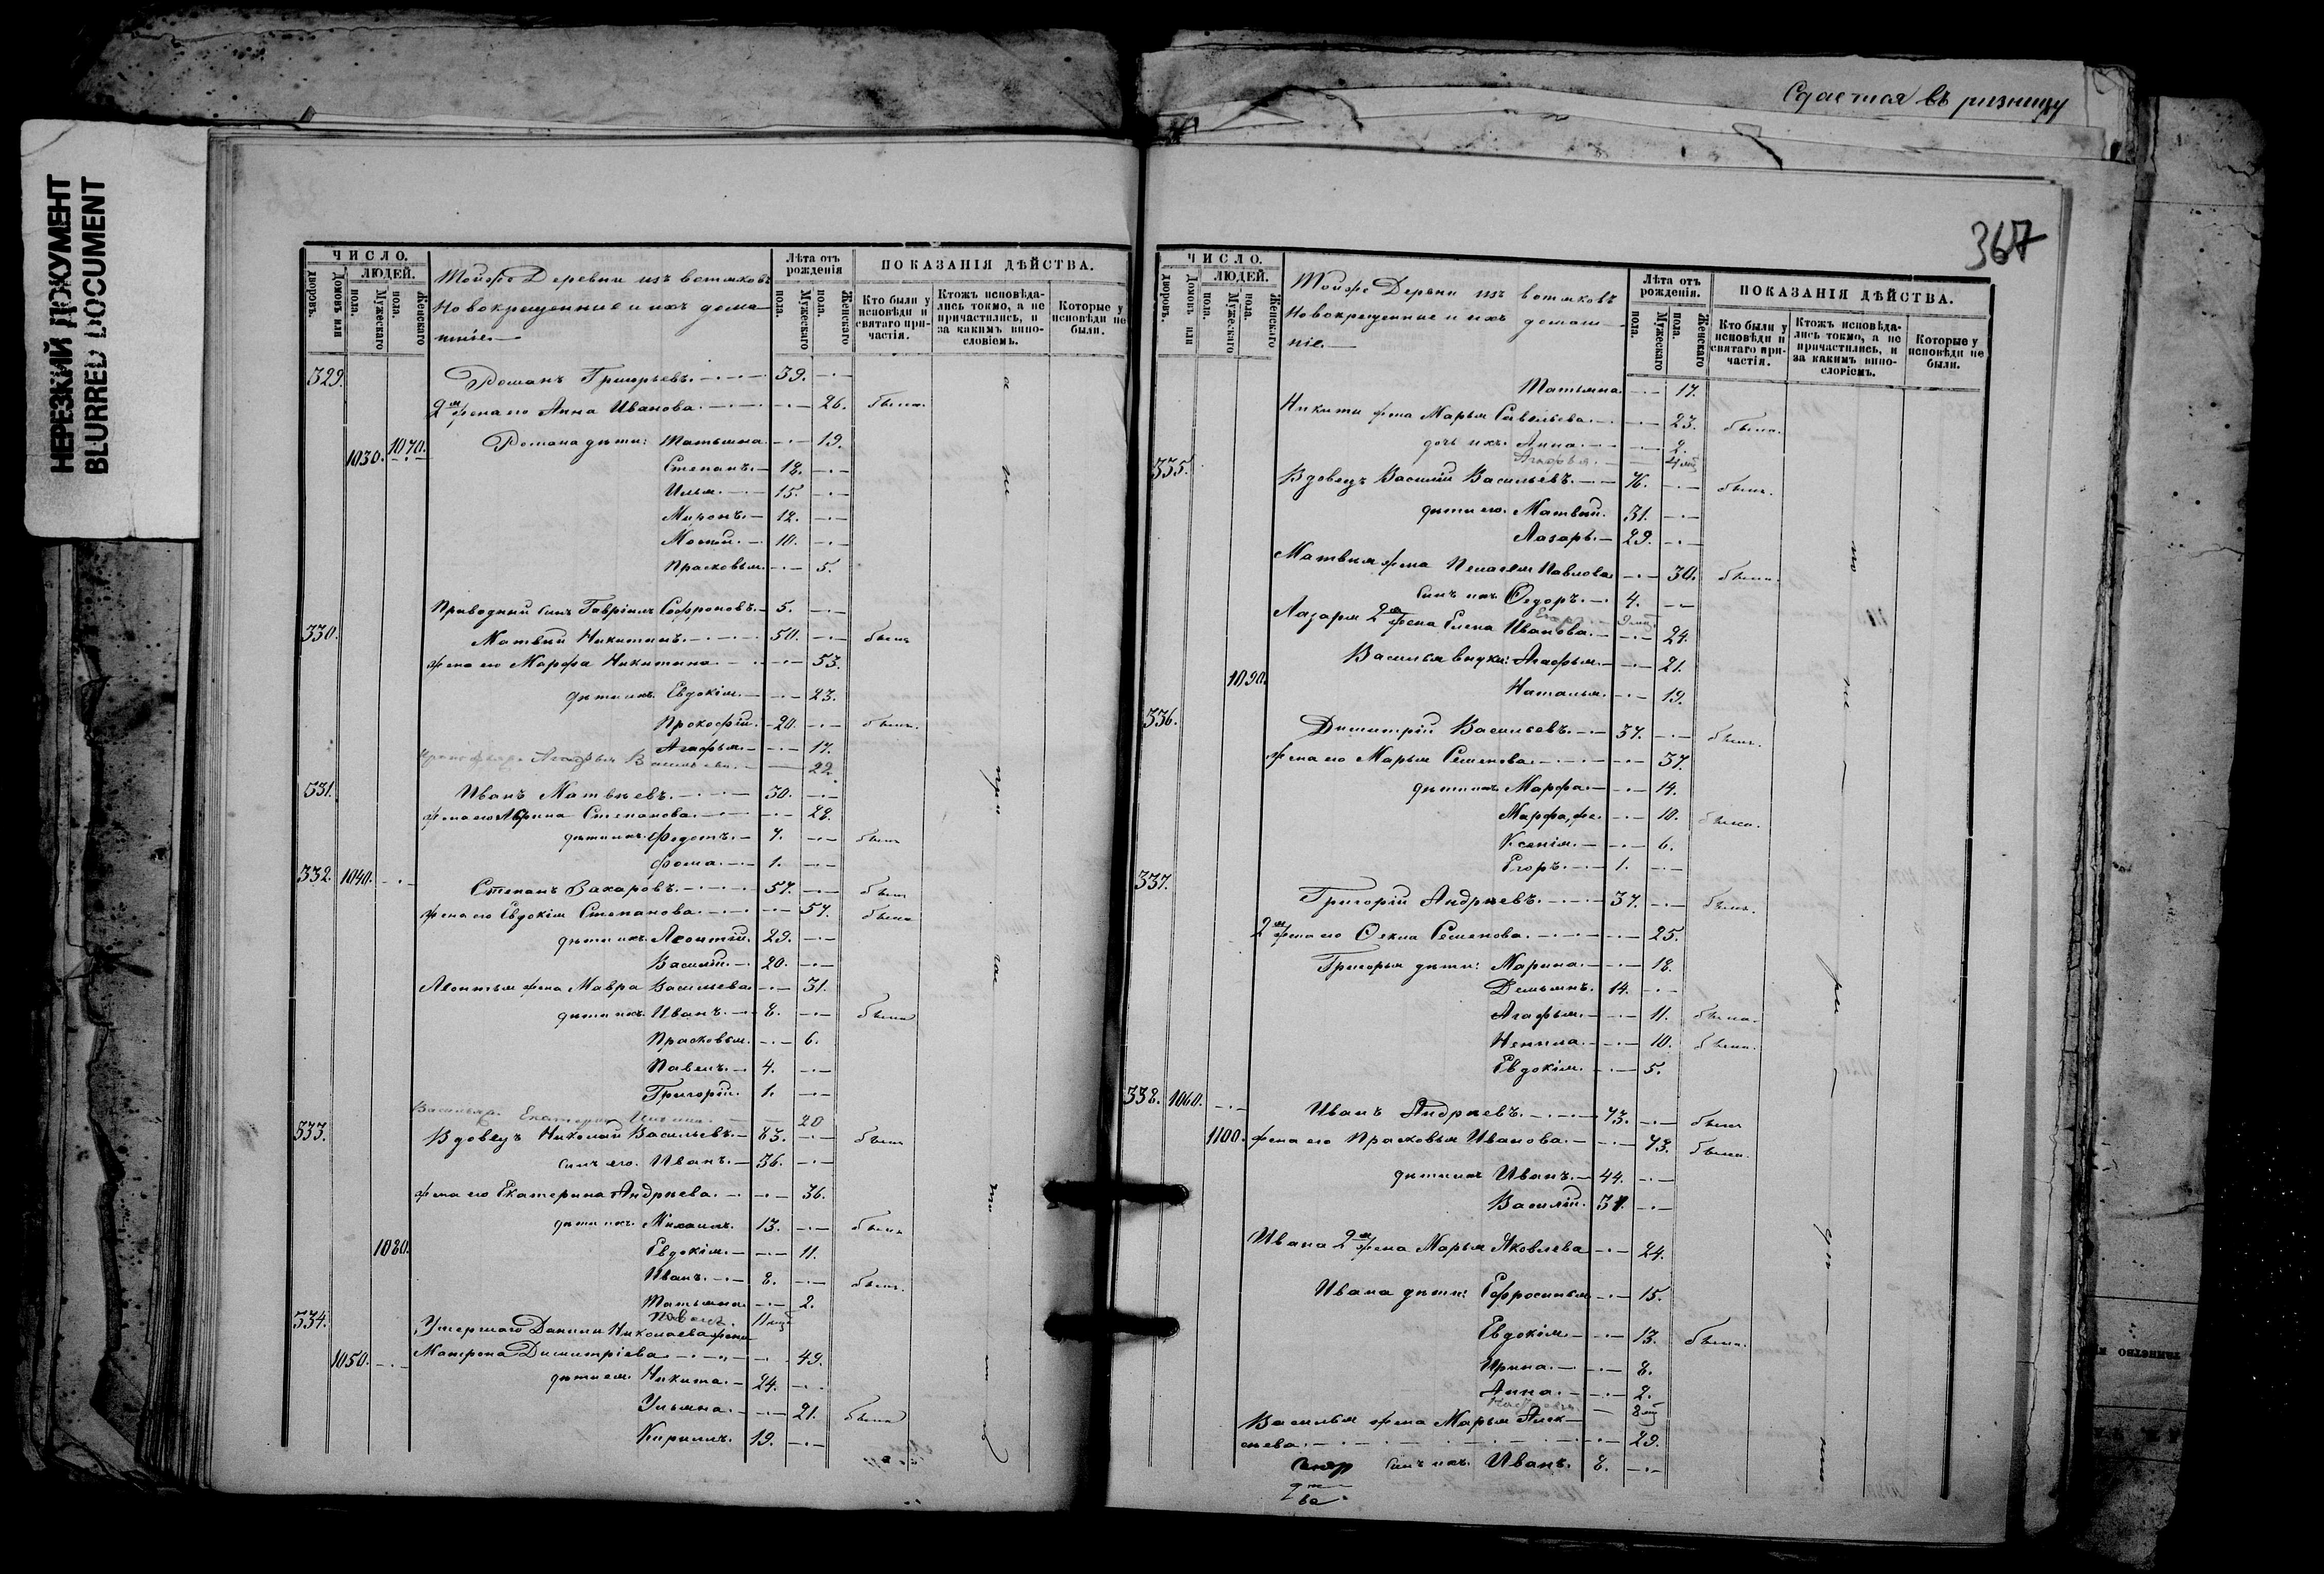 НЕРЕЗКИЙ ДОКУМЕНТ
BLURRED DOCUMENT
Сдается въ ризницу
367
ЧИСЛО.
ЛЮДЕЙ.
Дворовъ.
Домовъ или
Мужескаго пола.
Женскаго пола.
Тойже Деревни изъ вотяковъ
Новокрещенные и ихъ дома-
шніе.—
Лѣта отъ рожденія
Мужескаго пола.
Женскаго пола.
ПОКАЗАНІЯ ДѢЙСТВА.
Кто были у исповѣди и святаго при-частія.
Ктожъ исповѣда-лись токмо, а не причастились, и за какимъ вино-словіемъ.
Которые у исповѣди не были.
329. Романъ Григорьевъ. 39.
2я жена его Анна Иванова. 26. была.
1030. 1070. Романа дѣти: Татьяна. 19.
Степанъ. 18.
Илья. 15.
Миронъ. 12.
10.
Прасковья. 5.
Приводный сынъ Гавріилъ Софроновъ. 5.
330. Матвѣй Никитинъ. 50. былъ
жена его Марфа Никитина 53.
дѣти ихъ. Евдокія. 23.
Прокофій. 20. былъ.
Агафья. 17.
Агафья 22.
331. Иванъ Матвѣевъ. 30.
жена его Степанова. 28.
дѣти ихъ. Федотъ. 7. былъ
Фома. 1.
332. 1040. Степанъ Захаровъ. 57. былъ
жена его Евдокія Степанова. 57. была
дѣти ихъ. Леонтій. 29.
Василій. 20.
Леонтья жена Мавра Васильева. 31.
дѣти ихъ. Иванъ. 8.
Прасковья. 6.
Павелъ. 4.
Григорій. 1.
Екатерина 20
333. Вдовецъ Николай Васильевъ. 83. былъ
сынъ его. Иванъ. 36.
жена его Екатерина Андрѣева. 36.
дѣти ихъ. Михаилъ. 13. былъ
1080. Евдокія. 11.
Иванъ. 8. былъ.
Татьяна. 2.
Павелъ. 11 мѣ
334. Умершаго Данила Николаева жена
1050. Матрона Димитріева 49.
дѣти ея. Никита. 24.
Ульяна. 21. была
Кириллъ. 19.
ЧИСЛО.
ЛЮДЕЙ.
Дворовъ.
Домовъ или
Мужескаго пола.
Женскаго пола.
Тойже Дервни изъ вотяковъ
Новокрещенные и ихъ домаш-
ніе.—
Лѣта отъ рожденія.
Мужескаго пола.
Женскаго пола.
ПОКАЗАНІЯ ДѢЙСТВА.
Кто были у исповѣди и святаго при-частія.
Ктожъ исповѣда-лись токмо, а не причастились, и за какимъ вино-слоріемъ.
Которые у исповѣди не были.
Татьяна 17.
Никиты жена Марья Савельева. 23. была.
дочь ихъ. Анна. 2.
Агафья. 4 мѣ
335. Вдовецъ Василій Васильевъ. 76. былъ.
дѣти его. Матвѣй. 31.
Лазарь. 29.
Матвѣя жена Пелагея Павлова 30. была.
сынъ ихъ. Ѳедоръ. 4.
Егоръ 9 мѣ
Лазаря 2я жена Елена Иванова. 24.
Василья внуки: Агафья. 21.
1090. Наталья. 19.
336. Димитрій Васильевъ. 37. былъ.
жена его Марья Семенова. 37.
дѣти ихъ. Марфа. 14.
Марфа, же. 10. была.
Ксенія. 6.
Егоръ. 1.
337. Григорій Андрѣевъ. 37. былъ.
2я жена его Ѳекла Семенова. 25.
Григорья дѣти: Марина. 18.
Демьянъ. 14.
Агафья. 11. была.
Ненила. 10. была.
Евдокія. 5.
338. 1060. Иванъ Андрѣевъ. 73. былъ
1100. жена его Прасковья Иванова. 73. была.
дѣти ихъ Иванъ. 44.
Василій.
Ивана 2я жена Марья Яковлева 24.
Ивана дѣти: Ефросинья 15.
Евдокія. 13. была.
Ирина. 8.
Анна. 2.
8 мѣ
Василья жена Марья Алек-
сѣева. 29.
сынъ ихъ. Иванъ. 8.